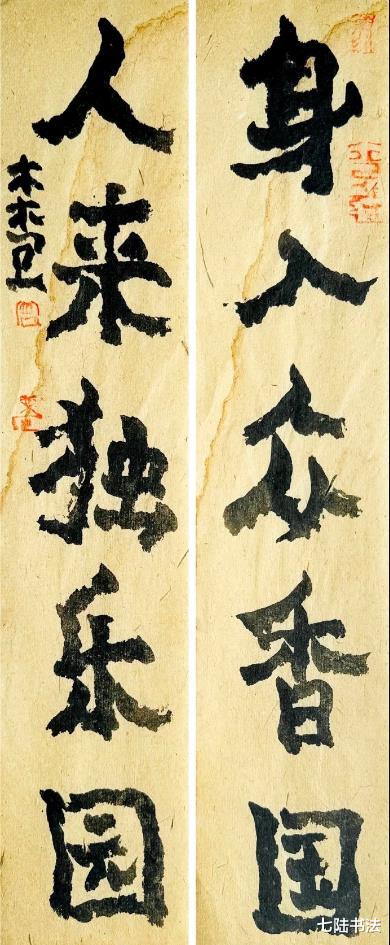 身入众香国
人来独乐园
木木
七陆书法